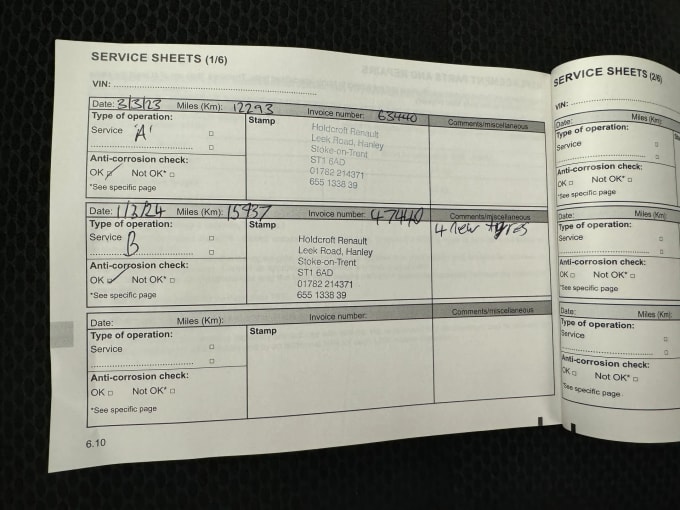 SERVICE SHEETS (1/6)
VIN:
Date: 3/3/23 Miles (Km): 12293 Invoice number: 63440 Comments/miscellaneous
Type of operation:
Service 'A'
Stamp
Holdcroft Renault
Leek Road, Hanley
Stoke-on-Trent
ST1 6AD
01782 214371
655 1338 39
Anti-corrosion check:
OK Not OK*
*See specific page
Date: 1/3/24 Miles (Km): 15937 Invoice number: 47440 Comments/miscellaneous
Type of operation:
Service B
Stamp
Holdcroft Renault
Leek Road, Hanley
Stoke-on-Trent
ST1 6AD
01782 214371
655 1338 39
4 new tyres
Anti-corrosion check:
OK Not OK*
*See specific page
Date: Miles (Km): Invoice number: Comments/miscellaneous
Type of operation:
Service
Stamp
Anti-corrosion check:
OK Not OK*
*See specific page
6.10
SERVICE SHEETS (2/6)
VIN:
Date: Miles (Km):
Type of operation:
Service
Anti-corrosion check:
OK Not OK*
*See specific page
Date: Miles (Km):
Type of operation:
Service
Anti-corrosion check:
OK Not OK*
*See specific page
Date: Miles (Km):
Type of operation:
Service
Anti-corrosion check:
OK Not OK*
*See specific page